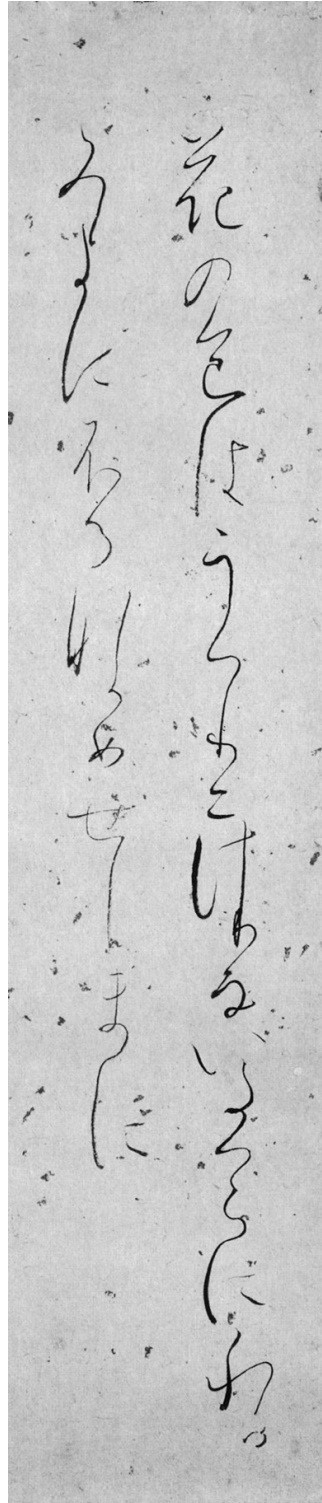 花の色はうつりにけりないたつらにわか
みよにふるなかめせしまに